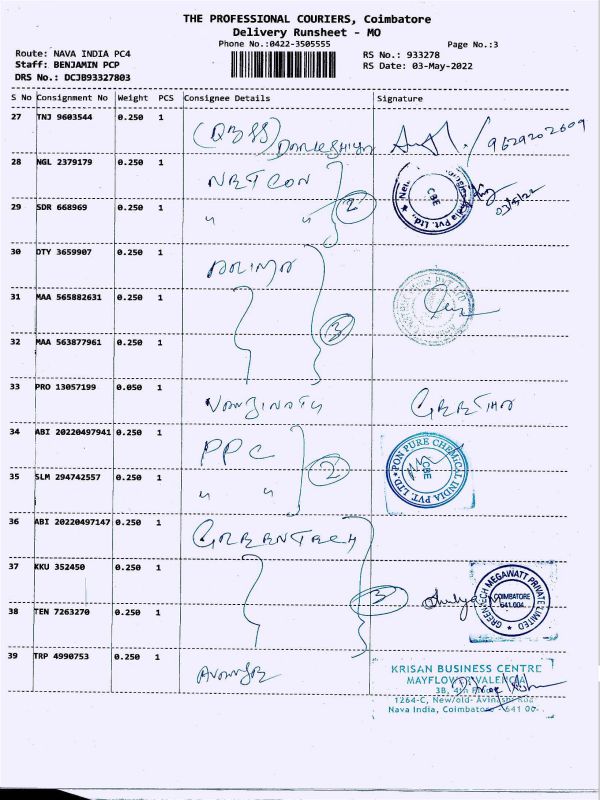 THE PROFESSIONAL COURIERS, Coimbatore
Delivery Runsheet - MO
Phone No.:0422-3505555
Page No.:3
Route: NAVA INDIA PC4
RS No.: 933278
Staff: BENJAMIN PCP
RS Date: 03-May-2022
DRS No.: DCJB93327803
S No Consignment No Weight PCS Consignee Details Signature
27 TNJ 9603544 0.250 1
9629202609
28 NGL 2379179 0.250 1 NETCON 2
CBE
03/5/22
29 SDR 668969 0.250 1 " "
30 DTY 3659907 0.250 1
31 MAA 565882631 0.250 1 3
32 MAA 563877961 0.250 1
33 PRO 13057199 0.050 1 GEETHA
34 ABI 20220497941 0.250 1 PPC 2
PON PURE CHEMICAL INDIA PVT. LTD. CBE
35 SLM 294742557 0.250 1 " "
36 ABI 20220497147 0.250 1 GREENTECH 3
37 KKU 352450 0.250 1
GREENTECH MEGAWATT PRIVATE LIMITED
COIMBATORE
641 004.
38 TEN 7263270 0.250 1
39 TRP 4990753 0.250 1
KRISAN BUSINESS CENTRE
MAYFLOWER VALENCIA
3B, 4th Floor
1264-C, New/old- Avinashi Road
Nava India, Coimbatore - 641 00